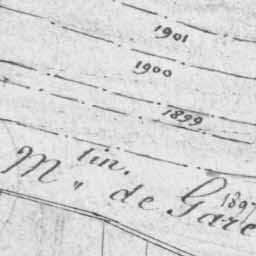 1901
1900
1899
1897
tin.
M." de Gare